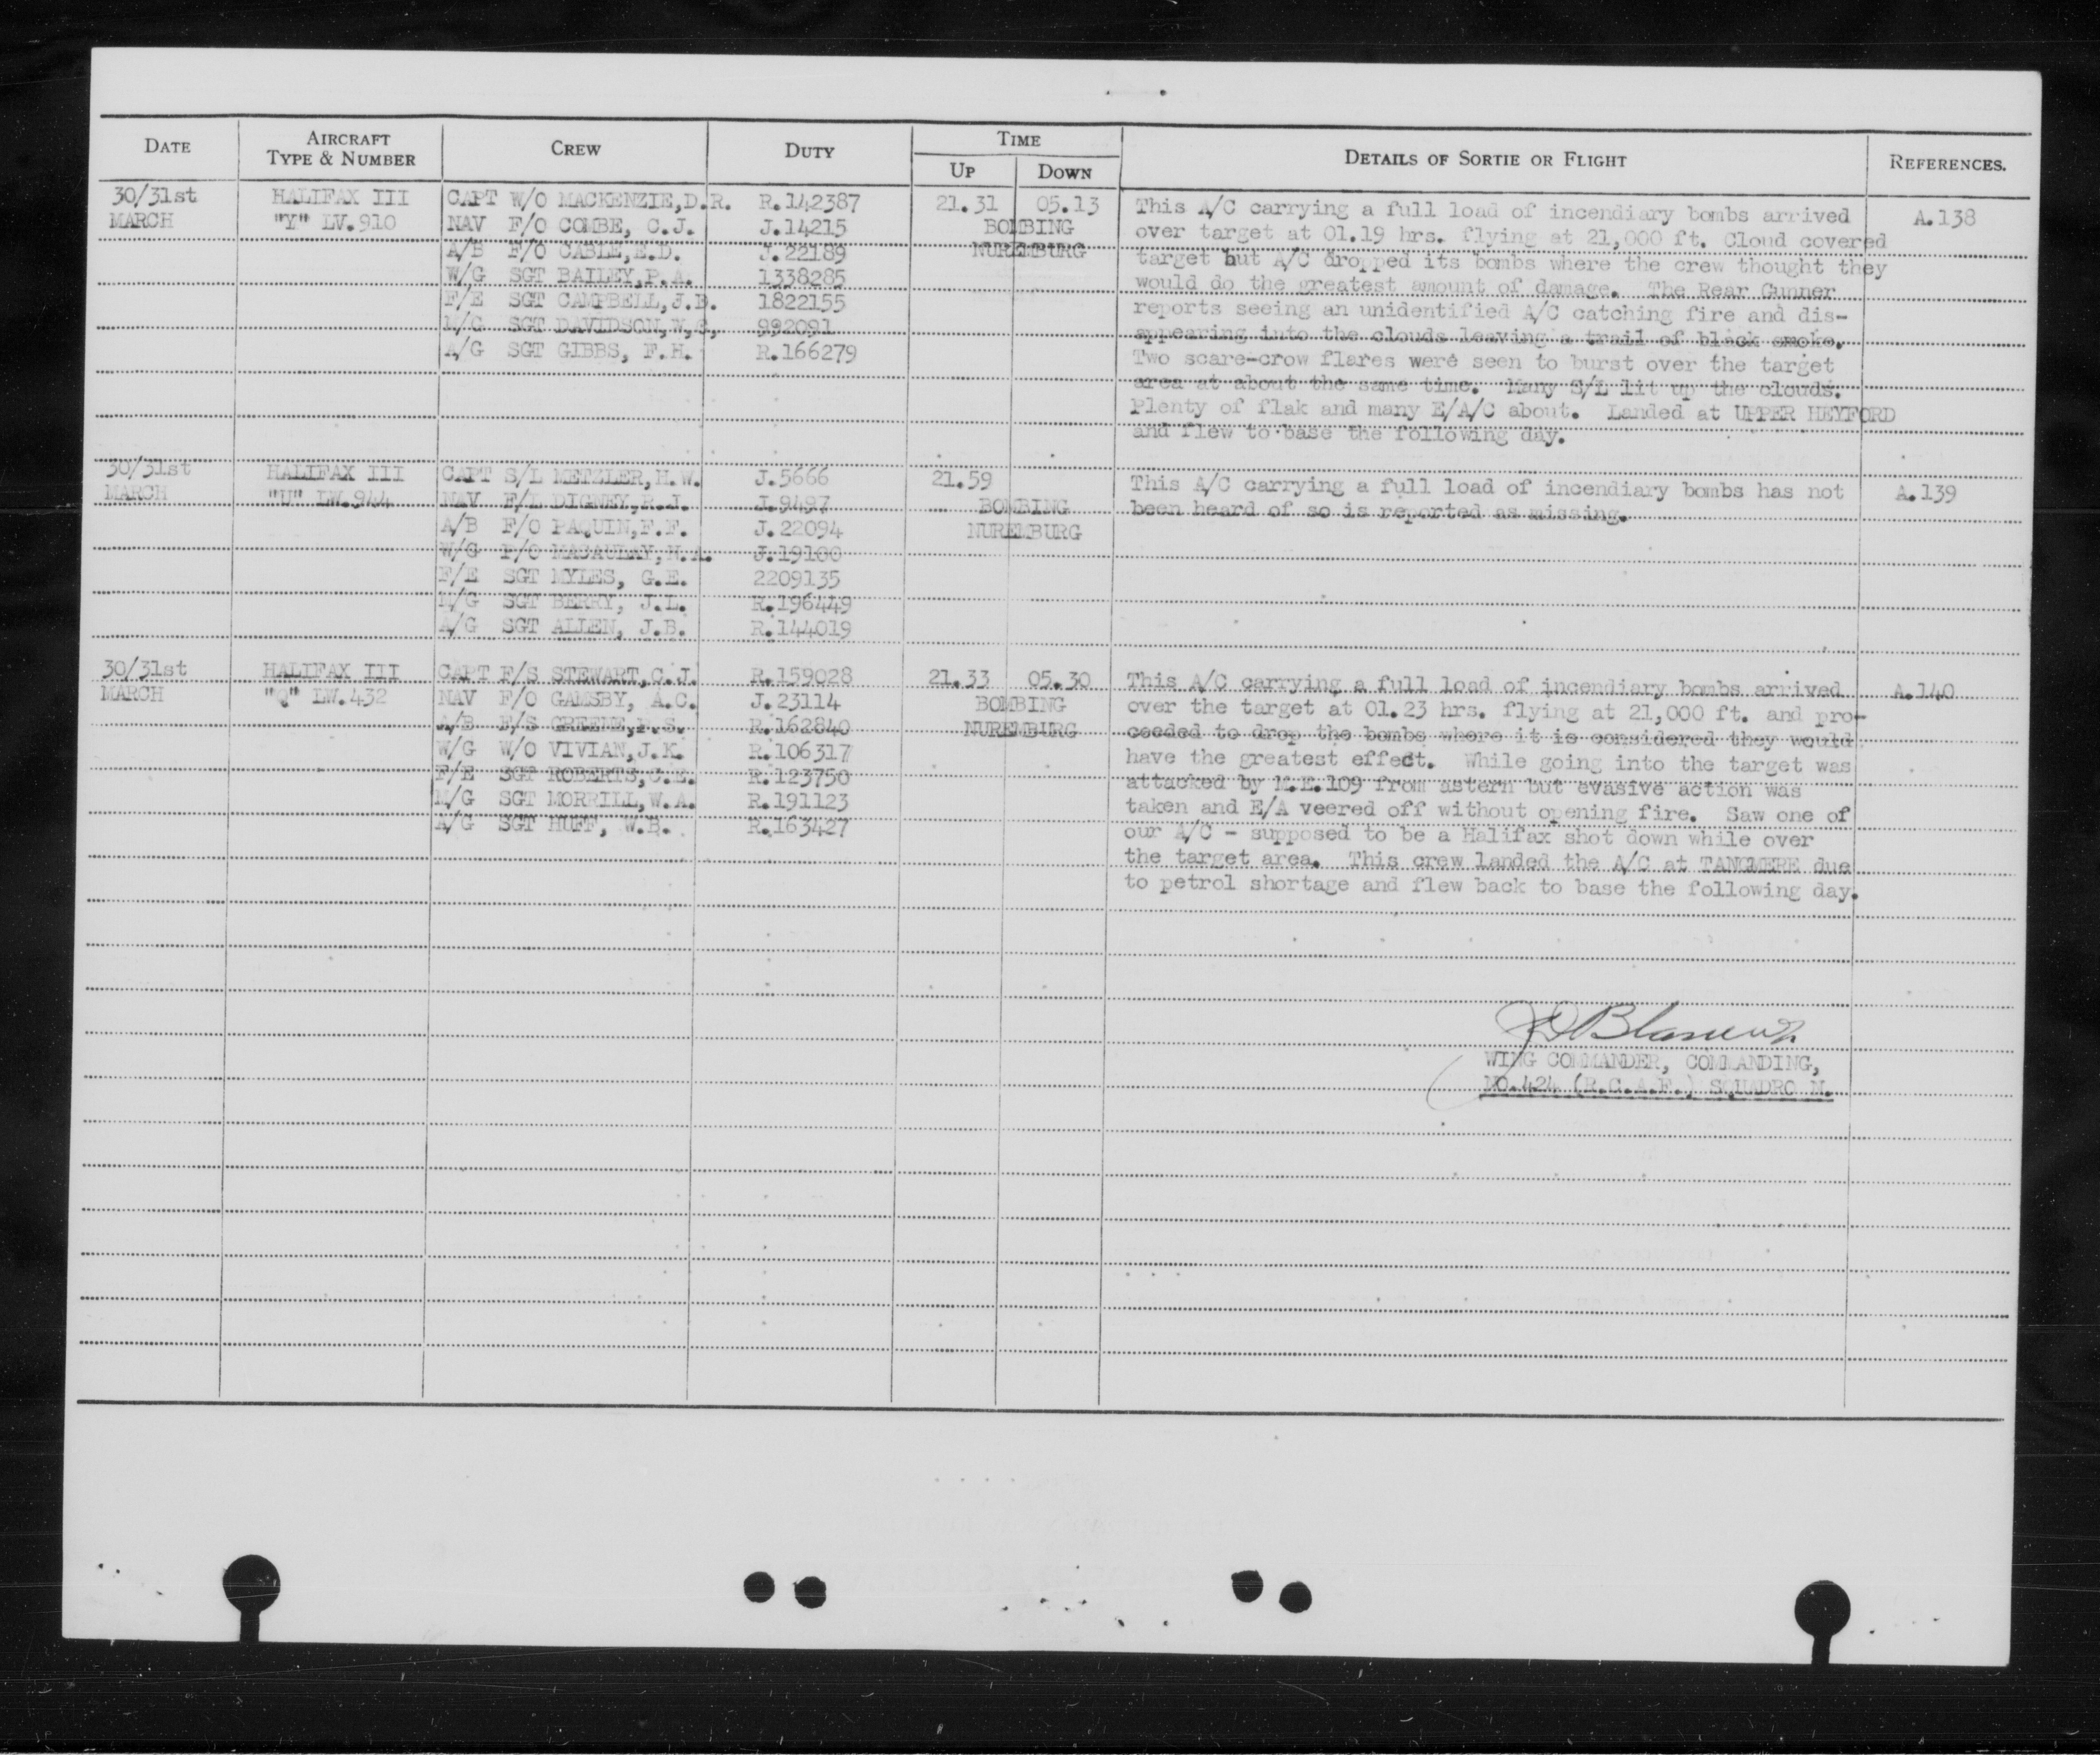 DATE AIRCRAFT TYPE & NUMBER CREW DUTY TIME UP DOWN DETAILS OF SORTIE OR FLIGHT REFERENCES.
30/31st HALIFAX III CAPT W/O MACKENZIE,D.R. R.142387 21.31 05.13 This A/C carrying a full load of incendiary bombs arrived A.138
MARCH "Y" LV.910 NAV F/O COMBE, C.J. J.14215 BOMBING over target at 01.19 hrs. flying at 21,000 ft. Cloud covered
A/B F/O CABLE,E.D. J.22189 NUREMBURG target but A/C dropped its bombs where the crew thought they
W/G SGT BAILEY,P.A. 1338285 would do the greatest amount of damage. The Rear Gunner
F/E SGT CAMPBELL,J.B. 1822155 reports seeing an unidentified A/C catching fire and dis-
M/G SGT DAVIDSON,W,S, 992091 appearing into the clouds leaving a trail of black smoke.
A/G SGT GIBBS, F.H. R.166279 Two scare-crow flares were seen to burst over the target
area at about the same time. Many S/L lit up the clouds.
Plenty of flak and many E/A/C about. Landed at UPPER HEYFORD
and flew to base the following day.
30/31st HALIFAX III CAPT S/L METZLER,H.W. J.5666 21.59 This A/C carrying a full load of incendiary bombs has not A.139
MARCH "U" LW.944 NAV F/L DIGNEY,R.I. J.9497 BOMBING been heard of so is reported as missing.
A/B F/O PAQUIN,F.F. J.22094 NUREMBURG
W/G P/O MACAULAY,N.A. J.19100
F/E SGT MYLES, G.E. 2209135
M/G SGT BERRY, J.L. R.196449
A/G SGT ALLEN, J.B. R.144019
30/31st HALIFAX III CAPT F/S STEWART,C.J. R.159028 21.33 05.30 This A/C carrying a full load of incendiary bombs arrived A.140
MARCH "Q" LW.432 NAV F/O GAMSBY, A.C. J.23114 BOMBING over the target at 01.23 hrs. flying at 21,000 ft. and pro-
A/B F/S GREENE,R.S. R.162840 NUREMBURG ceeded to drop the bombs where it is considered they would
W/G W/O VIVIAN,J.K. R.106317 have the greatest effect. While going into the target was
F/E SGT ROBERTS,C.E. R.123750 attacked by M.E.109 from astern but evasive action was
M/G SGT MORRILL,W.A. R.191123 taken and E/A veered off without opening fire. Saw one of
A/G SGT HUFF, W.B. R.163427 our A/C - supposed to be a Halifax shot down while over
the target area. This crew landed the A/C at TANGMERE due
to petrol shortage and flew back to base the following day.
WING COMMANDER, COMMANDING,
NO.424 (R.C.A.F.) SQUADRO N.